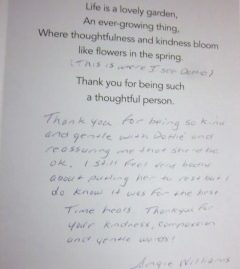 Life is a lovely garden,
An ever-growing thing,
Where thoughtfulness and kindness bloom
like flowers in the spring.
(This is where I see Dottie)
Thank you for being such
a thoughtful person.
Thank you for being so kind
and gentle with Dottie and
reassuring me that she'd be
ok. I still feel very bad
about putting her to rest but I
do know it was for the best.
Time heals. Thank you for
your kindness, compassion
and gentle words!
Angie Williams